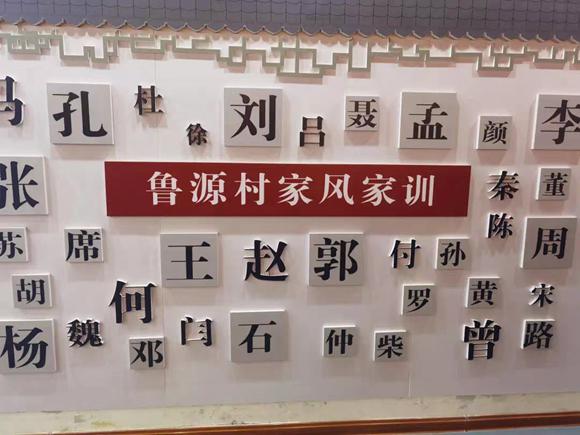 马 孔 杜 徐 刘 吕 聂 孟 颜 李
鲁源村家风家训
张 秦 董
苏 席 王 赵 郭 付 孙 陈 周
胡 何 罗 黄 宋
杨 魏 邓 闫 石 仲 柴 曾 路